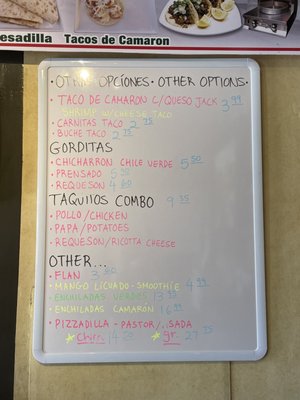 esadilla Tacos de Camaron
OTRAS OPCIONES • OTHER OPTIONS •
• TACO DE CAMARON C/QUESO JACK 3.99
SHRIMP W/CHEESE TACO
• CARNITAS TACO 2.75
• BUCHE TACO 2.75
GORDITAS
• CHICHARRON CHILE VERDE 5.50
• PRENSADO 5.50
• REQUESON 4.60
TAQUITOS COMBO 9.35
• POLLO/CHICKEN
• PAPA/POTATOES
• REQUESON/RICOTTA CHEESE
OTHER...
• FLAN 3.50
• MANGO LICUADO - SMOOTHIE 4.99
• ENCHILADAS VERDES 13.50
• ENCHILADAS CAMARON 16.99
• PIZZADILLA - PASTOR/ASADA
Chica 14.50 gr. 27.75